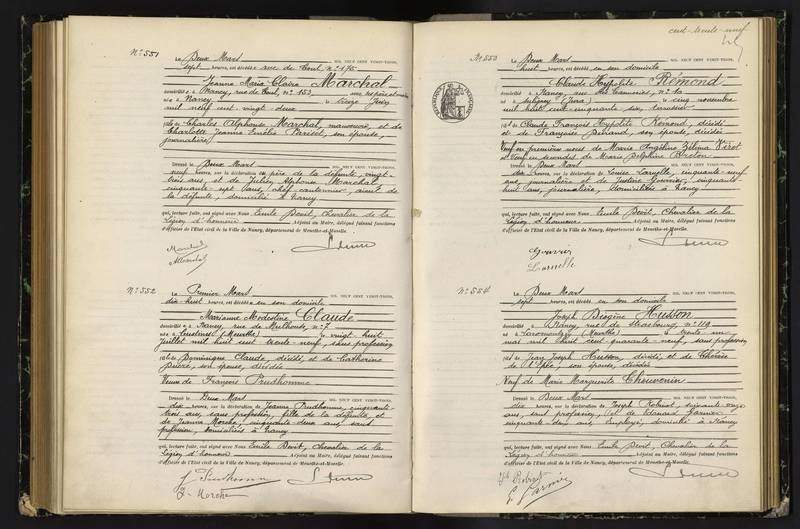 N° 551
Le Deux Mars MIL NEUF CENT VINGT-TROIS,
sept heures, est décédée rue de Toul, n° 175
Jeanne Marie Claire Marchal
domiciliée à Nancy, rue de Toul, n° 153 avec ses père et mère
née à Nancy le treize Juin
mil neuf cent vingt deux
fille de Charles Alphonse Marchal, manoeuvre, et de
Charlotte Jeanne Emélie Parisot, son épouse,
journalière
Dressé le Deux Mars MIL NEUF CENT VINGT-TROIS,
neuf heures, sur la déclaration du père de la défunte, vingt-
trois ans, et de Alphonse Marchal
cinquante sept ans, chef cantonnier, aïeul de
la défunte, domiciliés à Nancy
qui, lecture faite, ont signé avec Nous Emile Devit, Chevalier de la
Légion d'honneur Adjoint au Maire, délégué faisant fonctions
d'officier de l'Etat civil de la Ville de Nancy, département de Meurthe-et-Moselle.
Marchal
N° 552
Le Premier Mars MIL NEUF CENT VINGT-TROIS,
dix huit heures, est décédée en son domicile
Marianne Modestine Claude
domiciliée à Nancy, rue de Mulhouse, n° 7
née à Custines (Meurthe) le vingt huit
Juillet mil huit cent trente-neuf, sans profession
fille de Dominique Claude, décédé, et de Catherine
son épouse, décédée
Veuve de François Prudhomme
Dressé le Deux Mars MIL NEUF CENT VINGT-TROIS,
dix heures, sur la déclaration de Jeanne Prudhomme, cinquante-
trois ans, sans profession, fille de la défunte et
de Jeanne Morche, cinquante-deux ans, sans
profession, domiciliées à Nancy
qui, lecture faite, ont signé avec Nous Emile Devit, Chevalier de la
Légion d'honneur Adjoint au Maire, délégué faisant fonctions
d'officier de l'Etat civil de la Ville de Nancy, département de Meurthe-et-Moselle.
J. Prudhomme
J. Morche
cent-trente-neuf
N° 553
Le Deux Mars MIL NEUF CENT VINGT-TROIS,
huit heures, est décédé en son domicile
Claude Hypolite Rémond
domicilié à Nancy, rue des Tanneries, n° 10
né à (Jura) le cinq novembre
mil huit cent cinquante six,
fils de Claude François Hypolite Rémond, décédé
et de Françoise son épouse, décédée
Veuf en premières noces de Marie Angéline Zélima Virot
et Veuf en secondes de Marie Delphine Breton
Dressé le Deux Mars MIL NEUF CENT VINGT-TROIS,
dix heures, sur la déclaration de Louise Larnelle, cinquante-neuf
ans, journalière et de Justine Gouvier, cinquante
huit ans, journalière, domiciliées à Nancy
qui, lecture faite, ont signé avec Nous Emile Devit, Chevalier de la
Légion d'honneur Adjoint au Maire, délégué faisant fonctions
d'officier de l'Etat civil de la Ville de Nancy, département de Meurthe-et-Moselle.
Larnelle
N° 554
Le Deux Mars MIL NEUF CENT VINGT-TROIS,
sept heures, est décédé en son domicile
Joseph Diogène Husson
domicilié à Nancy, rue de Strasbourg, n° 119
né à (Meurthe) le trente un
mai mil huit cent quarante-neuf, sans profession
fils de Jean Joseph Husson, décédé, et de Thérèse
son épouse, décédée
Veuf de Marie Marguerite Chouvenin
Dressé le Deux Mars MIL NEUF CENT VINGT-TROIS,
dix heures, sur la déclaration de Joseph Robinet, soixante-onze
ans, sans profession, et de Edouard Garnier
cinquante-deux ans, employé, domiciliés à Nancy
qui, lecture faite, ont signé avec Nous Emile Devit, Chevalier de la
Légion d'honneur Adjoint au Maire, délégué faisant fonctions
d'officier de l'Etat civil de la Ville de Nancy, département de Meurthe-et-Moselle.